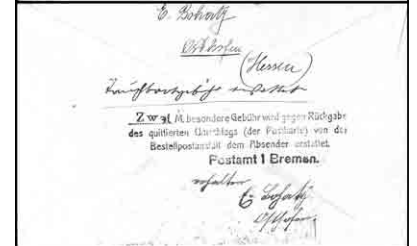 E. Bohatz
Osthofen
(Hessen)
Zwei M. besondere Gebühr wird gegen Rückgabe
des quittierten Umschlags (der Postkarte) von der
Bestellpostanstalt dem Absender erstattet.
Postamt 1 Bremen.
erhalten
E. Bohatz
Osthofen